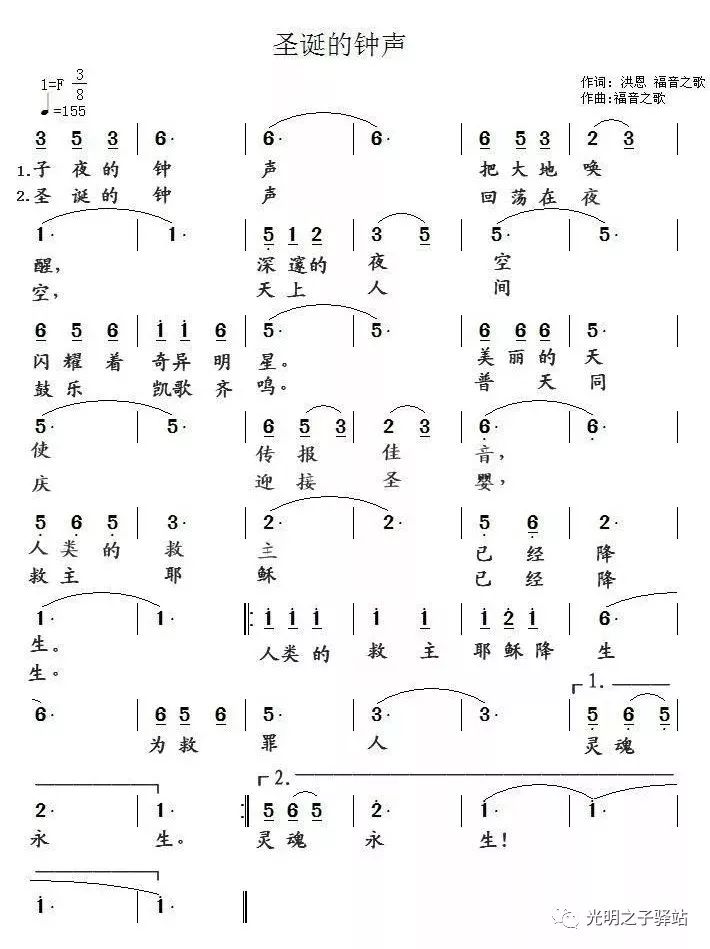 圣诞的钟声
1=F 3/8
♩=155
作词：洪恩 福音之歌
作曲:福音之歌
3 5 3 | 6· | 6· | 6· | 6 5 3 | 2 3 |
1.子夜的 钟 声 把大地 唤
2.圣诞的 钟 声 回荡在 夜
1· | 1· | 5 1 2 | 3 5 | 5· | 5· |
醒， 深邃的 夜 空
空， 天上 人 间
6 5 6 | 1 1 6 | 5· | 5· | 6 6 6 | 5· |
闪耀着 奇异明 星。 美丽的 天
鼓乐 凯歌齐 鸣。 普天同
5· | 5· | 6 5 3 | 2 3 | 6· | 6· |
使 传报 佳 音，
庆 迎接 圣 婴，
5 6 5 | 3· | 2· | 2· | 5 6 | 2· |
人类的 救 主 已经 降
救主 耶 稣 已经 降
1· | 1· 1 1 1 | 1 1 | 1 2 1 | 6· |
生。 人类的 救主 耶稣降 生
生。
1.
6· | 6 5 6 | 5· | 3· | 3· | 5 6 5 |
为救 罪 人 灵魂
2.
2· | 1· 5 6 5 | 2· | 1· | 1· |
永 生。 灵魂 永 生！
1· | 1· |
光明之子驿站